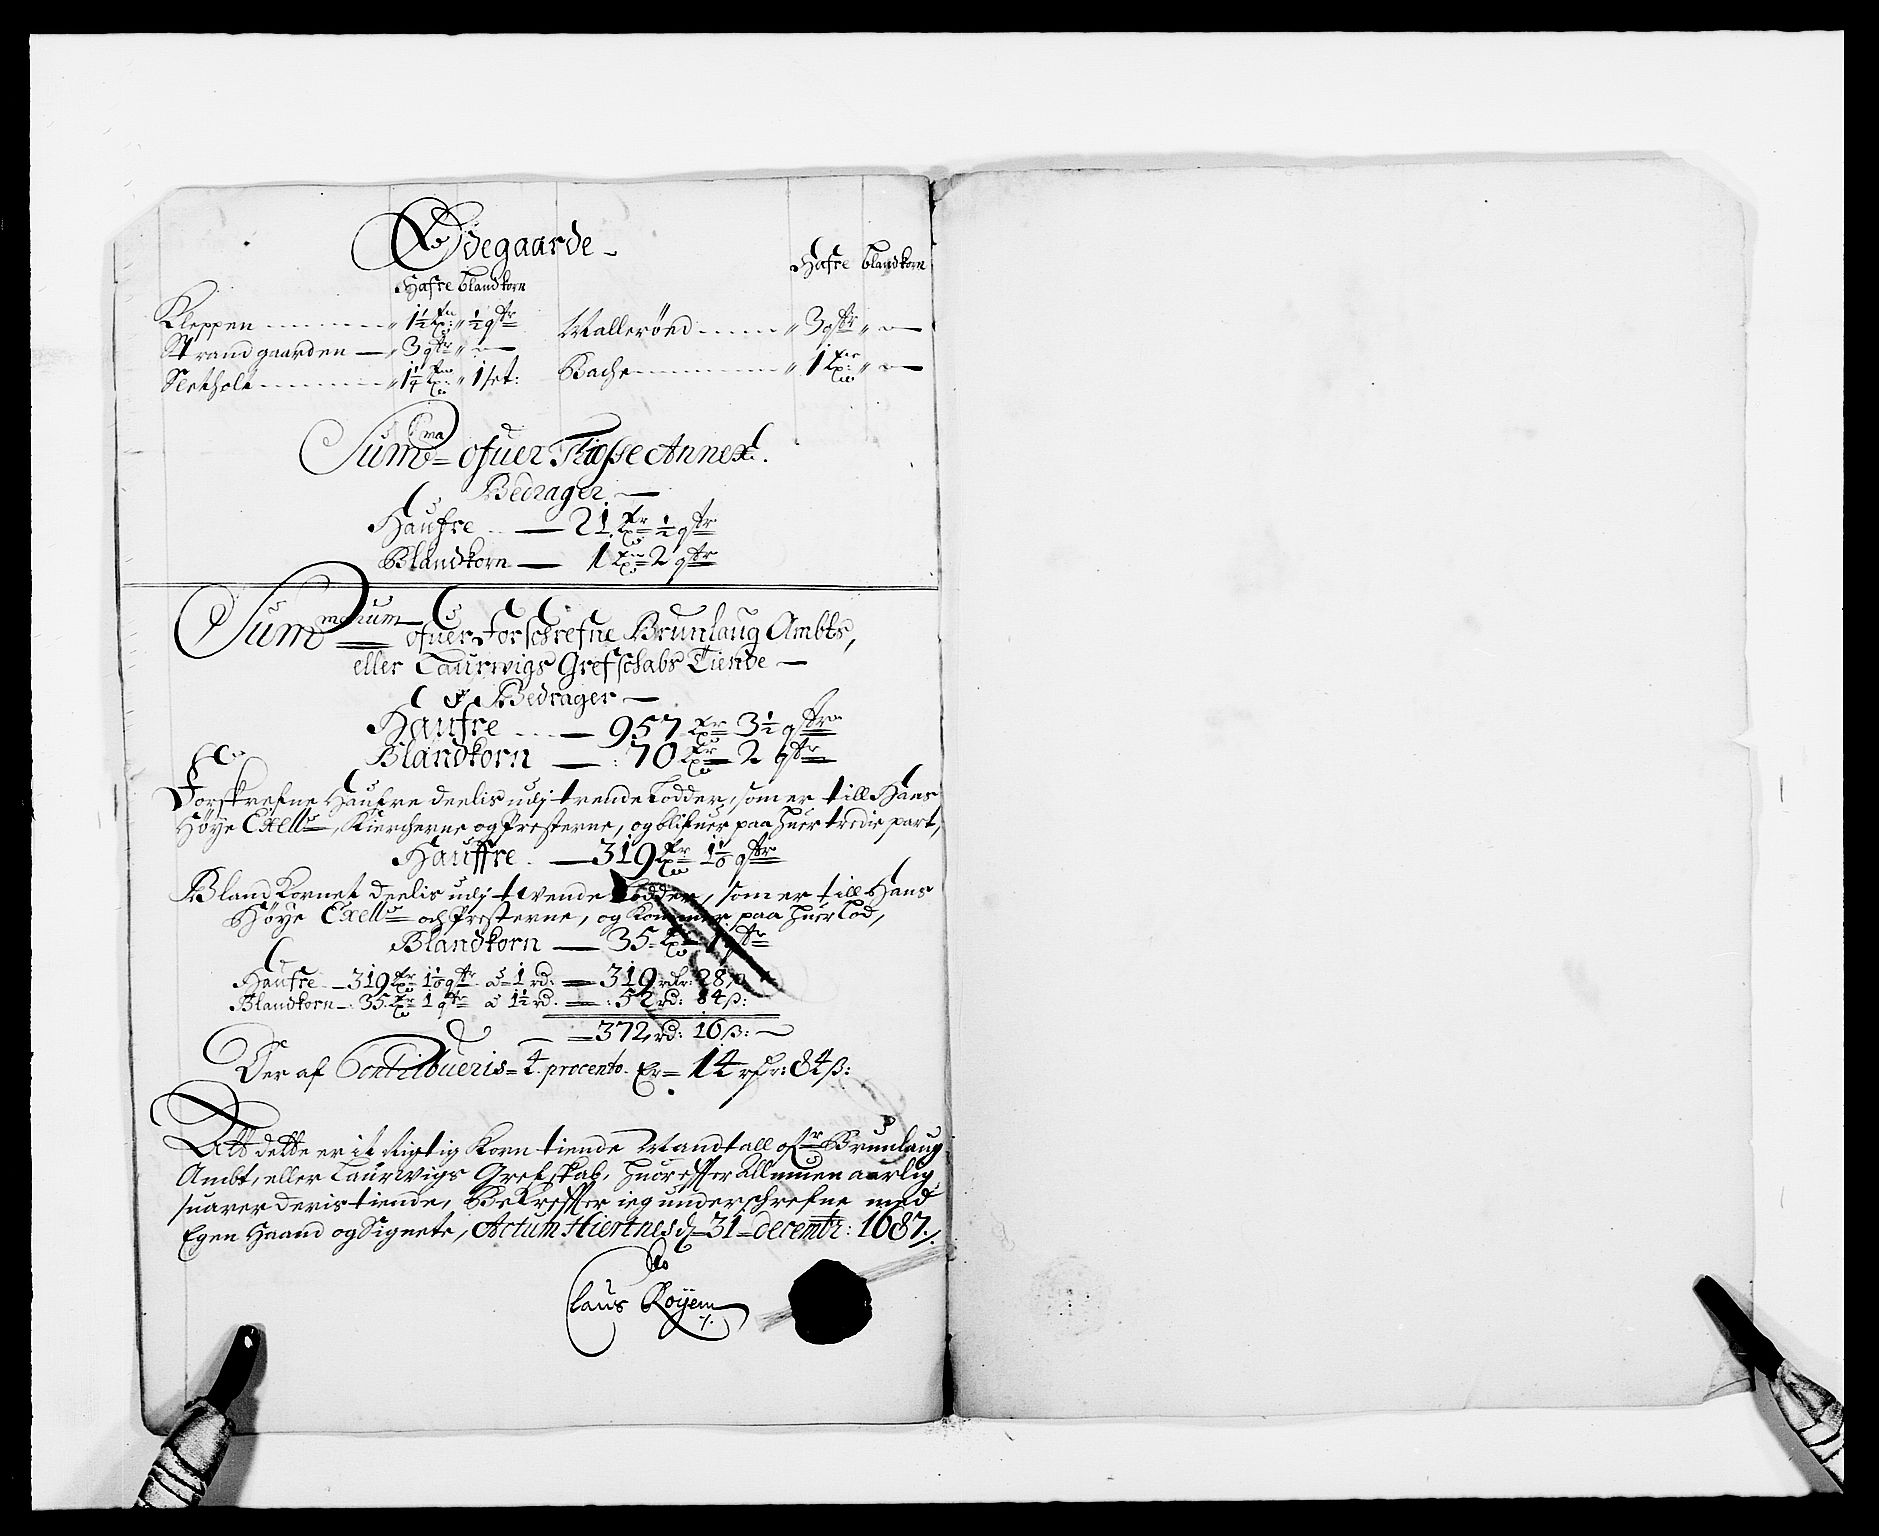 Ødegaarde
Hafre blandkorn Hafre blandkorn
Kleppen 1½ tr ½ qtr Wallerönd 3 qtr
Strandgaarden 3 qtr
Sletholt 1¼ 1 set: Bache 1
Suma ofuer Tiøsse Annex.
Bedrager
Haufre 21 ½ qtr
Blandkorn 1 2 qtr
Summarum ofuer Forschrefne Brunlaug Ambts,
eller Laurwigs Grefschabs Tiende
Bedrager
Haufre 957 3½ qtr
Blandkorn 70 2 qtr
Forskrefne Haufre deelis udj trende Lodder, som er till Hans
Høye Exells, Kiercherne og Presterne, og blifuer paa huer tredie part,
Hauffre 319 1⅙ qtr
Bland Kornet deelis udj tvende Lodder, som er till Hans
Høye Exells och Presterne, og Kommer paa huer Lod,
Blandkorn 35 1 qtr
Haufre 319 1⅙ qtr à 1 rd: 319 rdr: 28 ß
Blandkorn 35 1 qtr à 1½ rd. 52 rd: 84 ß:
372 rd: 16 ß:
Der af Contribueris 4 procento. Er 14 rdr: 84 ß:
Att dette er it Rigtig Korn tiende Mandtall ofr Brunlaug
Ambt, eller Laurwigs Grefskab, huorefter Allmuen aarlig
suarer deris tiende, Bekrefter ieg underschrefne med
Egen Haand og Signete, Actum Hiertnes d 31 decembr: 1687
Claus Røyem